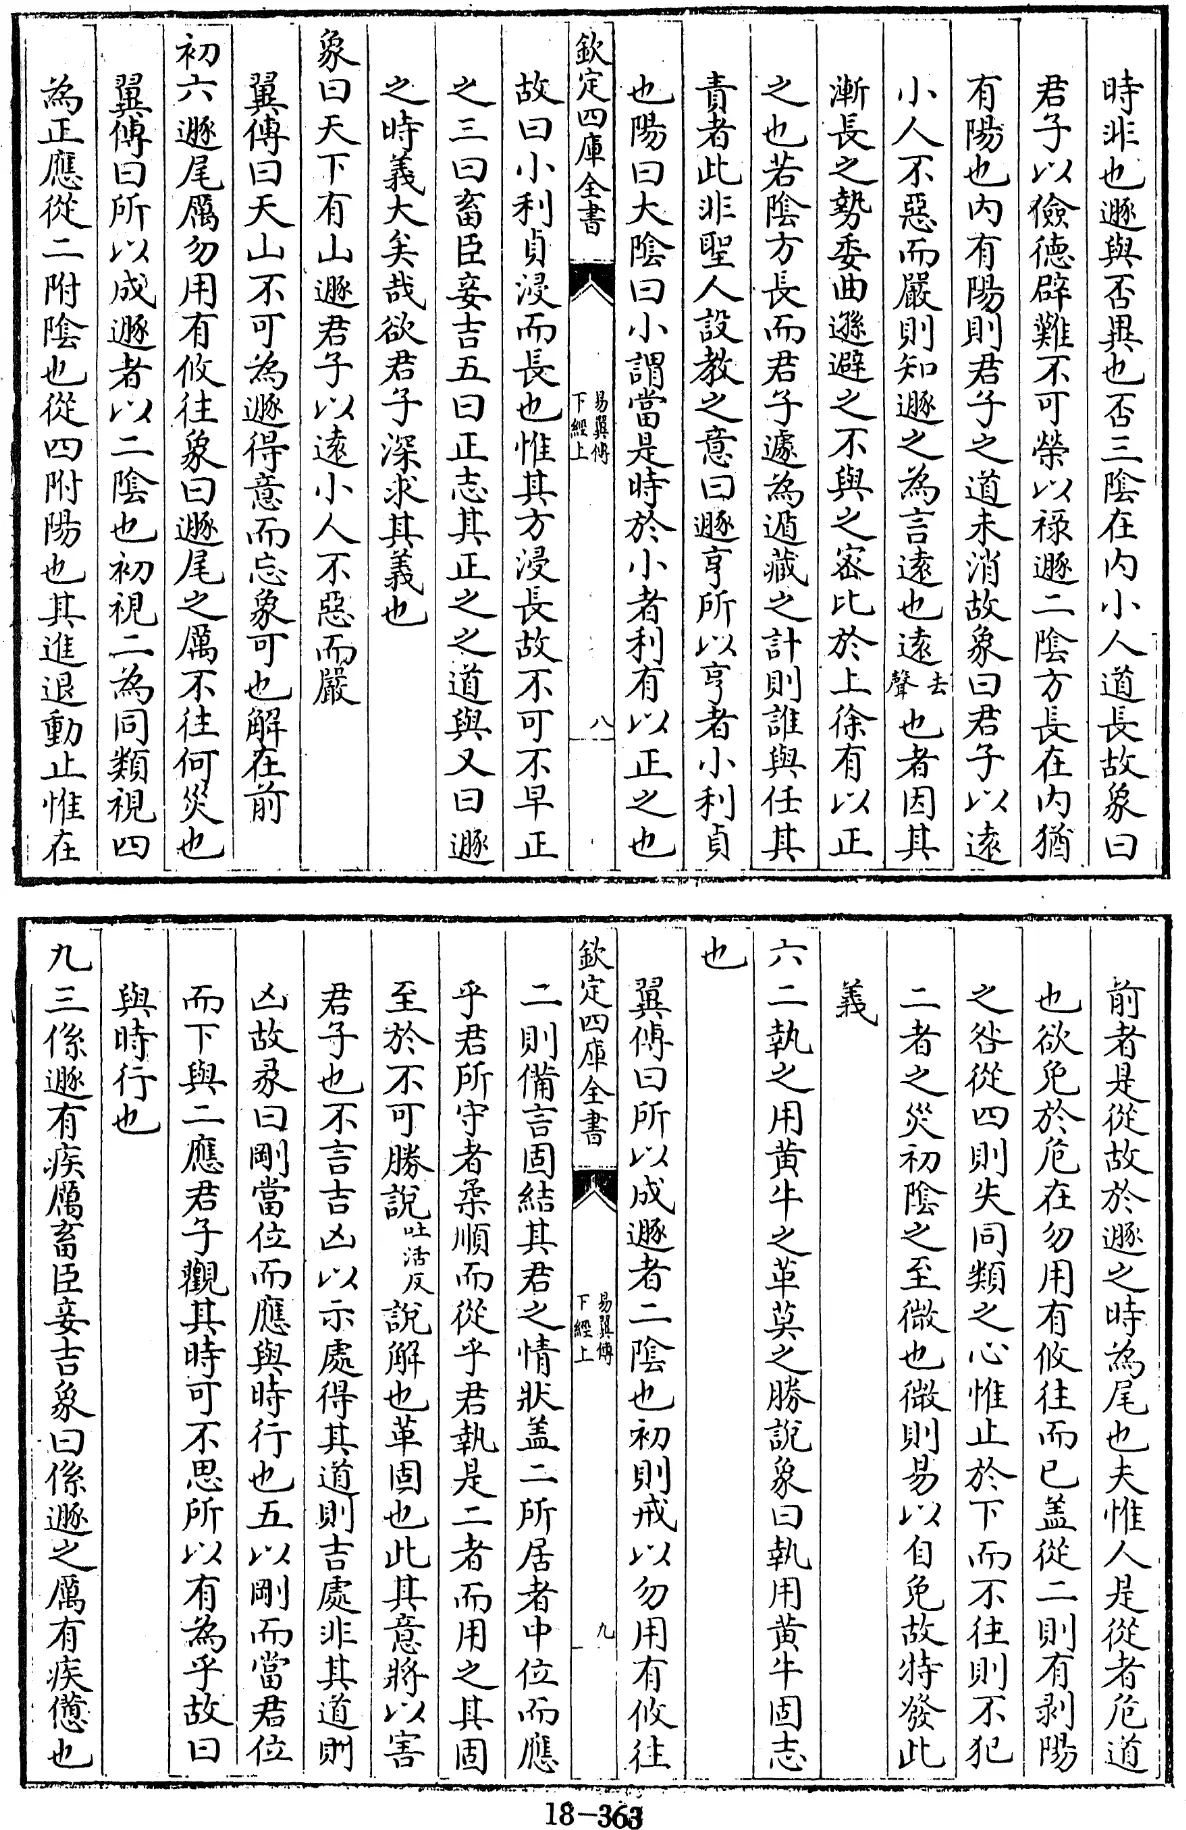 時非也遯與否異也否三陰在内小人道長故象曰
君子以儉德辟難不可榮以禄遯二陰方長在内猶
有陽也内有陽則君子之道未消故象曰君子以遠
小人不惡而嚴則知遯之為言遠也遠去聲也者因其
漸長之勢委曲遜避之不與之密比於上徐有以正
之也若陰方長而君子遽為遁藏之計則誰與任其
責者此非聖人設教之意曰遯亨所以亨者小利貞
也陽曰大陰曰小謂當是時於小者利有以正之也
欽定四庫全書
易翼傳
下經上
八
故曰小利貞浸而長也惟其方浸長故不可不早正
之三曰畜臣妾吉五曰正志其正之之道與又曰遯
之時義大矣哉欲君子深求其義也
象曰天下有山遯君子以遠小人不惡而嚴
翼傳曰天山不可為遯得意而忘象可也解在前
初六遯尾厲勿用有攸往象曰遯尾之厲不往何災也
翼傳曰所以成遯者以二陰也初視二為同類視四
為正應從二附陰也從四附陽也其進退動止惟在
前者是從故於遯之時為尾也夫惟人是從者危道
也欲免於危在勿用有攸往而已盖從二則有剥陽
之咎從四則失同類之心惟止於下而不往則不犯
二者之災初陰之至微也微則易以自免故特發此
義
六二執之用黄牛之革莫之勝說象曰執用黄牛固志
也
翼傳曰所以成遯者二陰也初則戒以勿用有攸往
欽定四庫全書
易翼傳
下經上
九
二則備言固結其君之情狀盖二所居者中位而應
乎君所守者柔順而從乎君執是二者而用之其固
至於不可勝說吐活反說解也革固也此其意將以害
君子也不言吉凶以示處得其道則吉處非其道則
凶故彖曰剛當位而應與時行也五以剛而當君位
而下與二應君子觀其時可不思所以有為乎故曰
與時行也
九三係遯有疾厲畜臣妾吉象曰係遯之厲有疾憊也
18-363